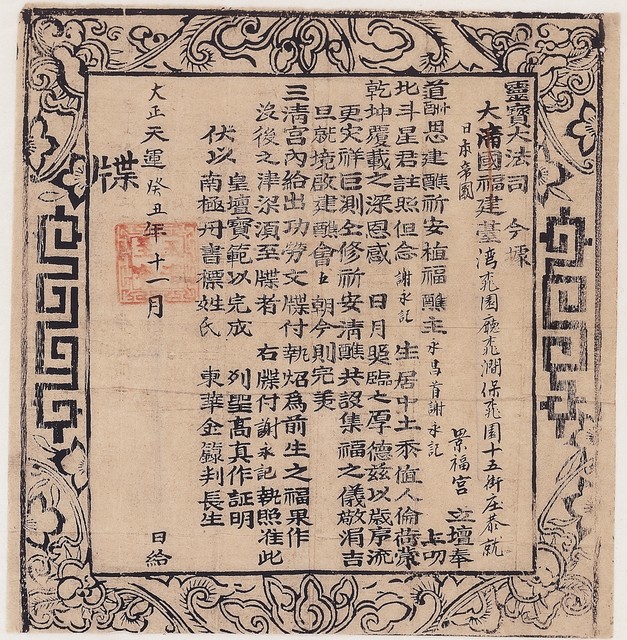 靈寶大法司 今據
大清國福建臺灣桃園廳桃澗保桃園十五街庄泰就
日本帝國
景福宮 立壇奉
道酬恩建醮祈安植福醮主永昌首謝永記 上叨
北斗星君註照但念謝永記 生居中土忝值人倫荷蒙
乾坤覆載之深恩感 日月照臨之厚德茲以歲序流
更災祥叵測仝修祈安清醮共設集福之儀敬涓吉
旦就境啟建醮會五朝今則完美
三清宮內給出功勞文牒付執炤為前生之福果作
沒後之津梁須至牒者 右牒付謝永記執照准此
伏以 皇壇寶範以完成 列聖高真作証明
南極丹書標姓氏 東華金籙判長生
大正天運癸丑年十一月 日給
牒